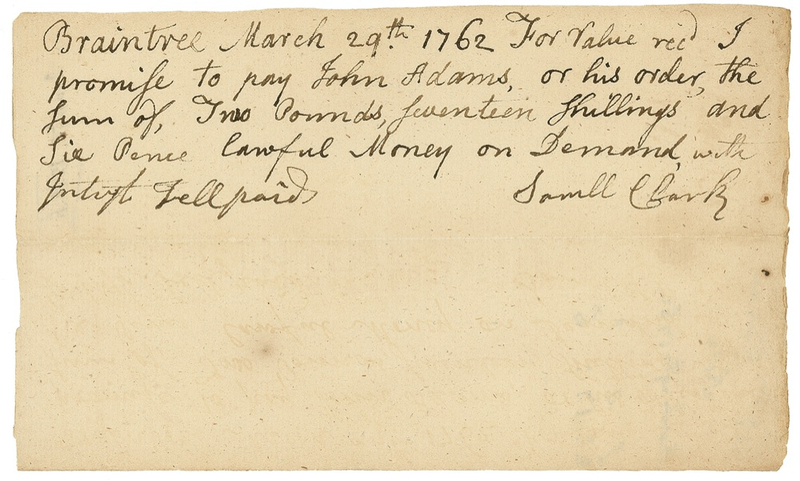 Braintree March 29th. 1762 For Value recd I
promise to pay John Adams, or his order, the
sum of, Two Pounds, seventeen shillings and
Six Pence lawful Money on Demand, with
Intrst Tell paid
Samll Clark